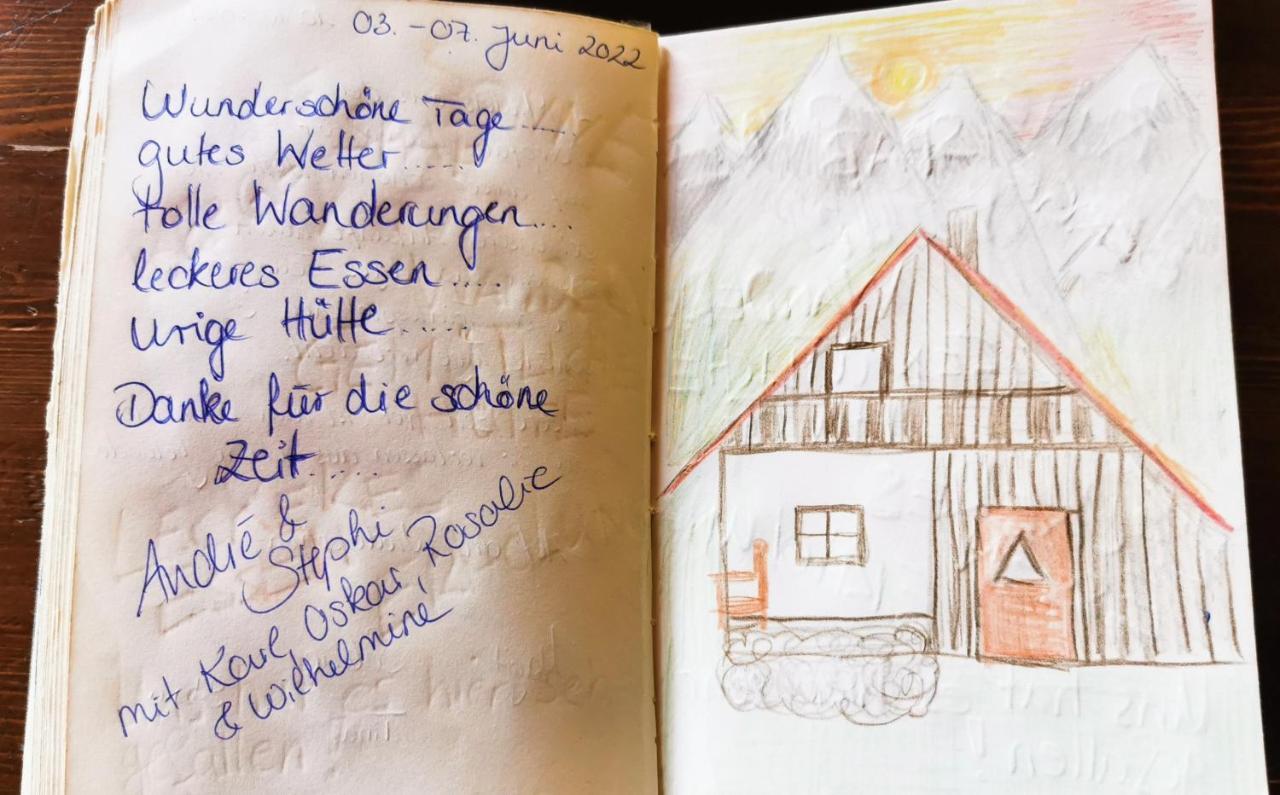 03. - 07. Juni 2022
Wunderschöne Tage.....
gutes Wetter.....
tolle Wanderungen...
leckeres Essen....
urige Hütte.....
Danke für die schöne
Zeit.....
André &
Stephi
mit Karl, Oskar, Rosalie
& Wilhelmine